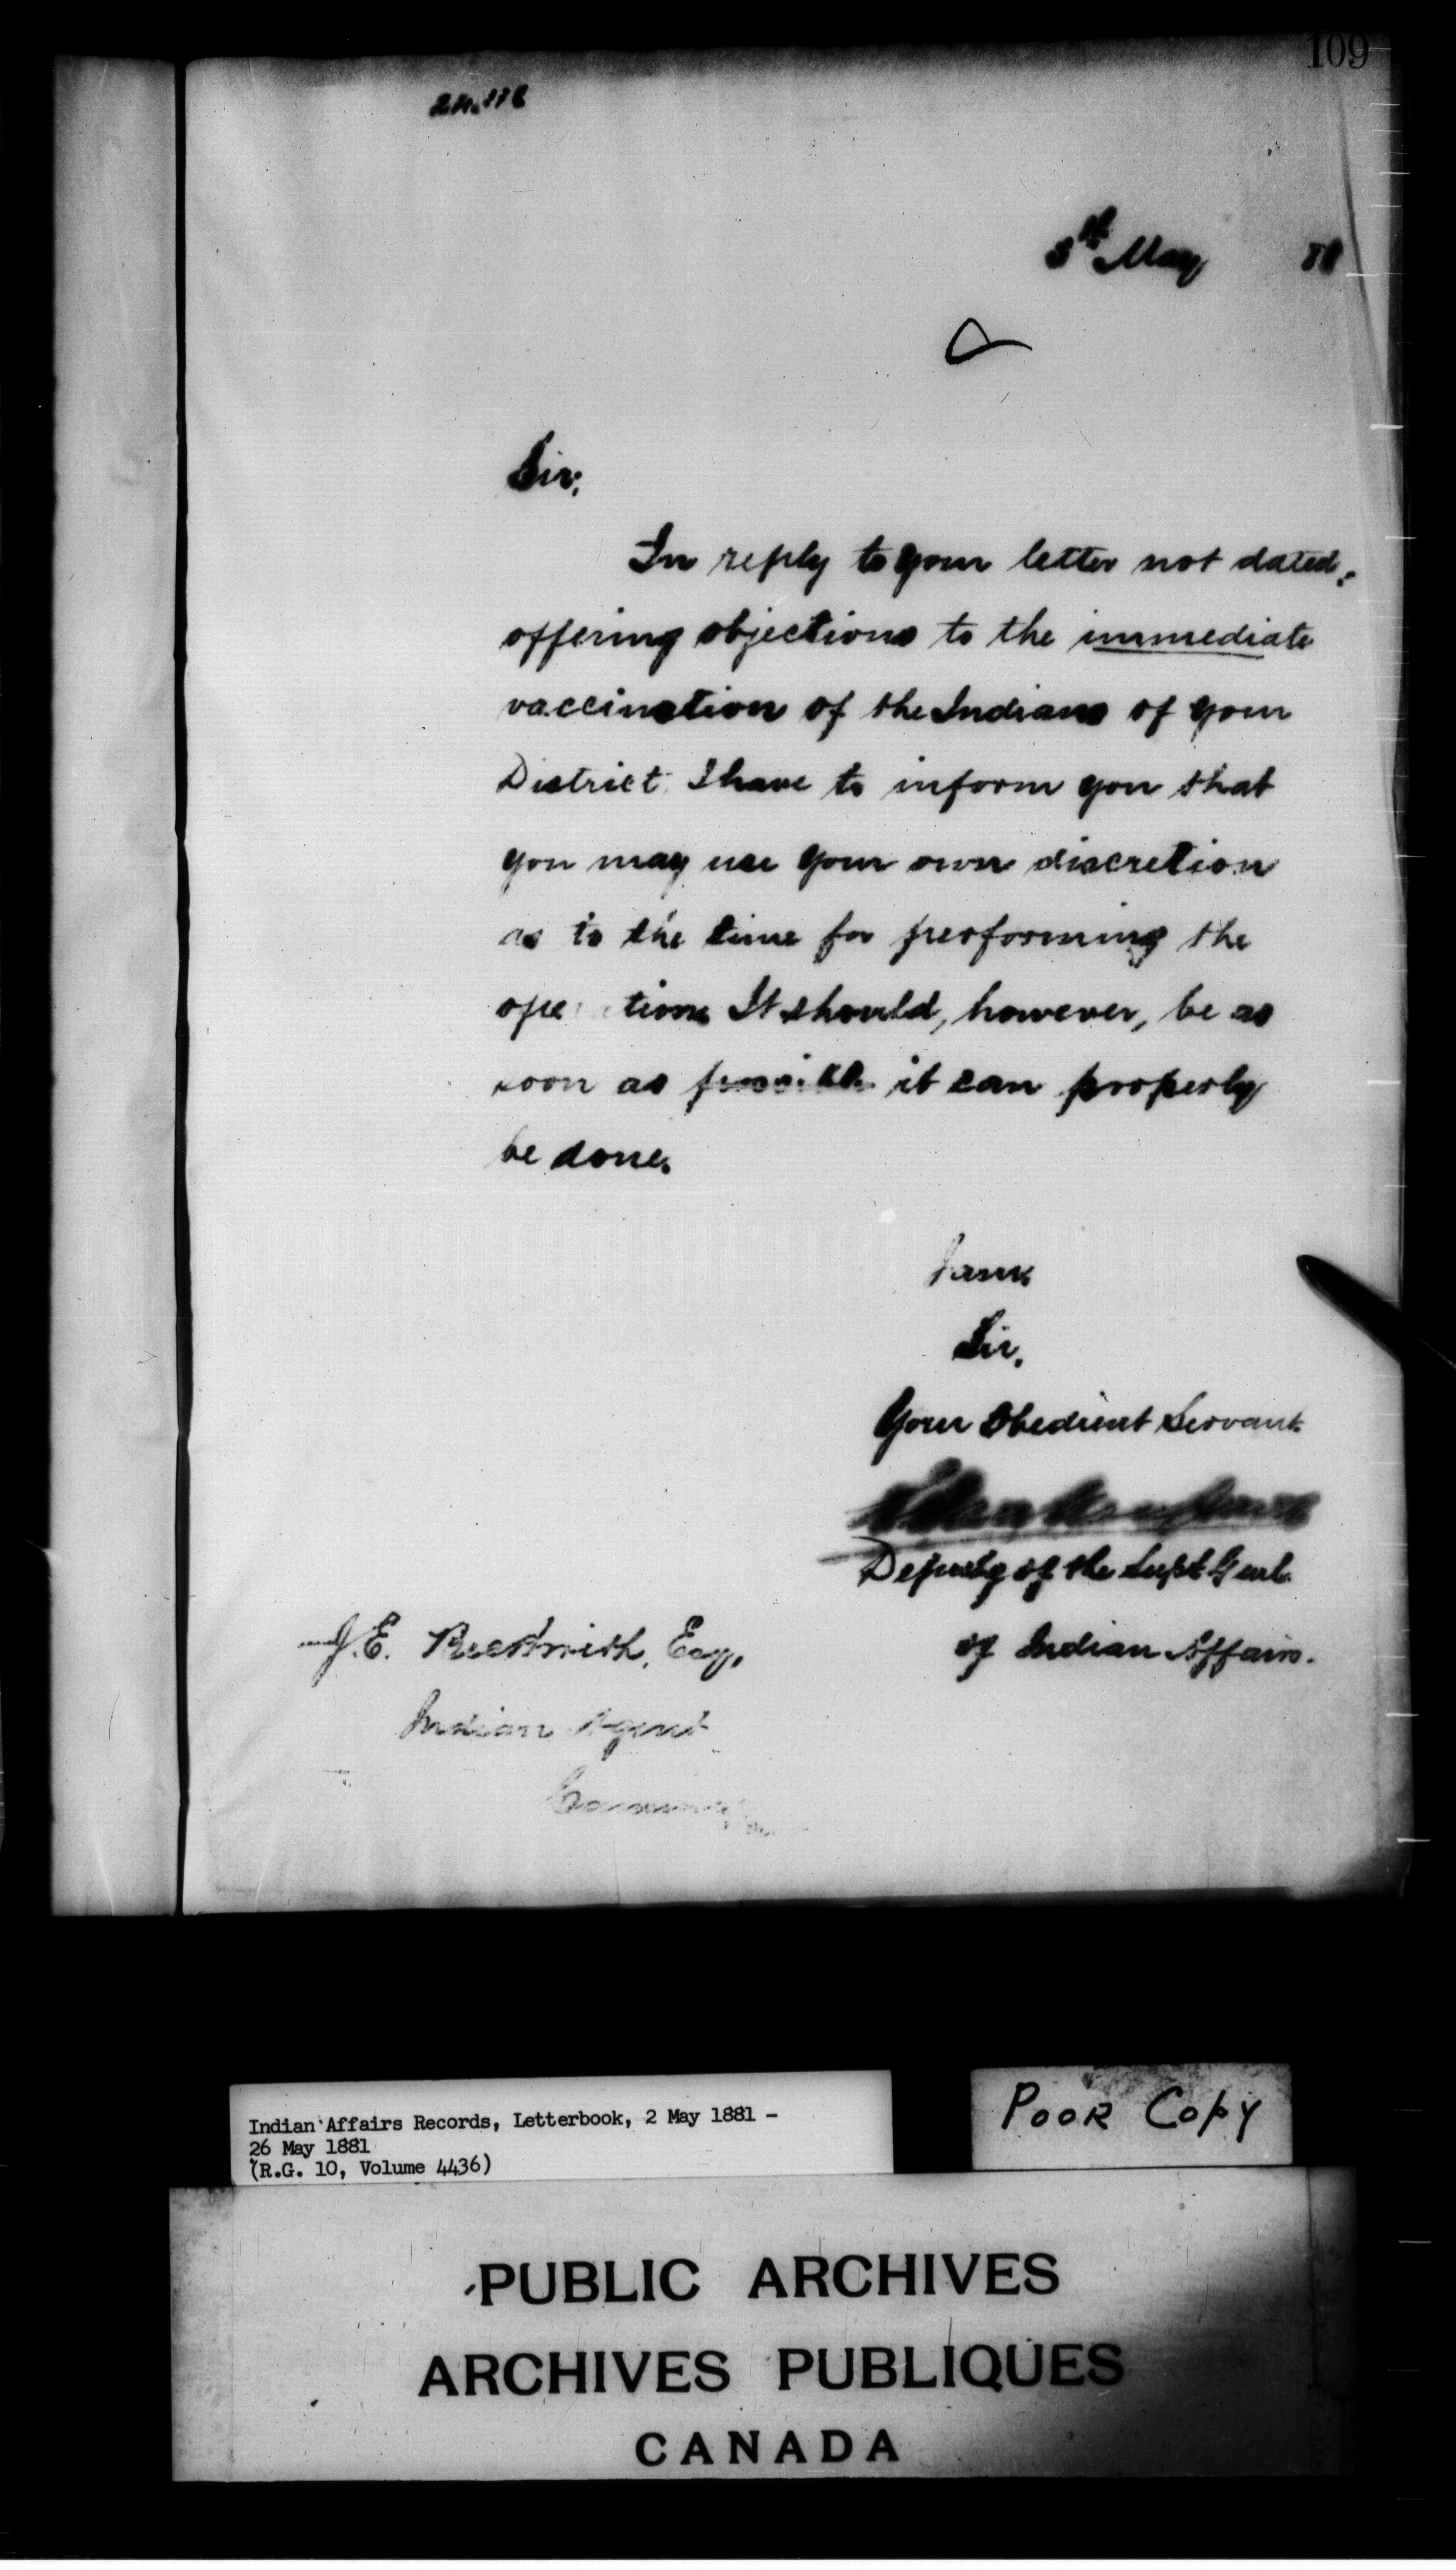 109
5th May 81
Sir,
In reply to your letter not dated,
offering objections to the immediate
vaccination of the Indians of your
District, I have to inform you that
you may use your own discretion
as to the time for performing the
ope tion. It should, however, be as
soon as it can properly
be done.
I am,
Sir,
Your Obedient Servant
Deputy of the Supt Genl.
of Indian Affairs.
J.E. Esq,
Indian Agent
Indian Affairs Records, Letterbook, 2 May 1881 -
26 May 1881
(R.G. 10, Volume 4436)
POOR COPY
PUBLIC ARCHIVES
ARCHIVES PUBLIQUES
CANADA